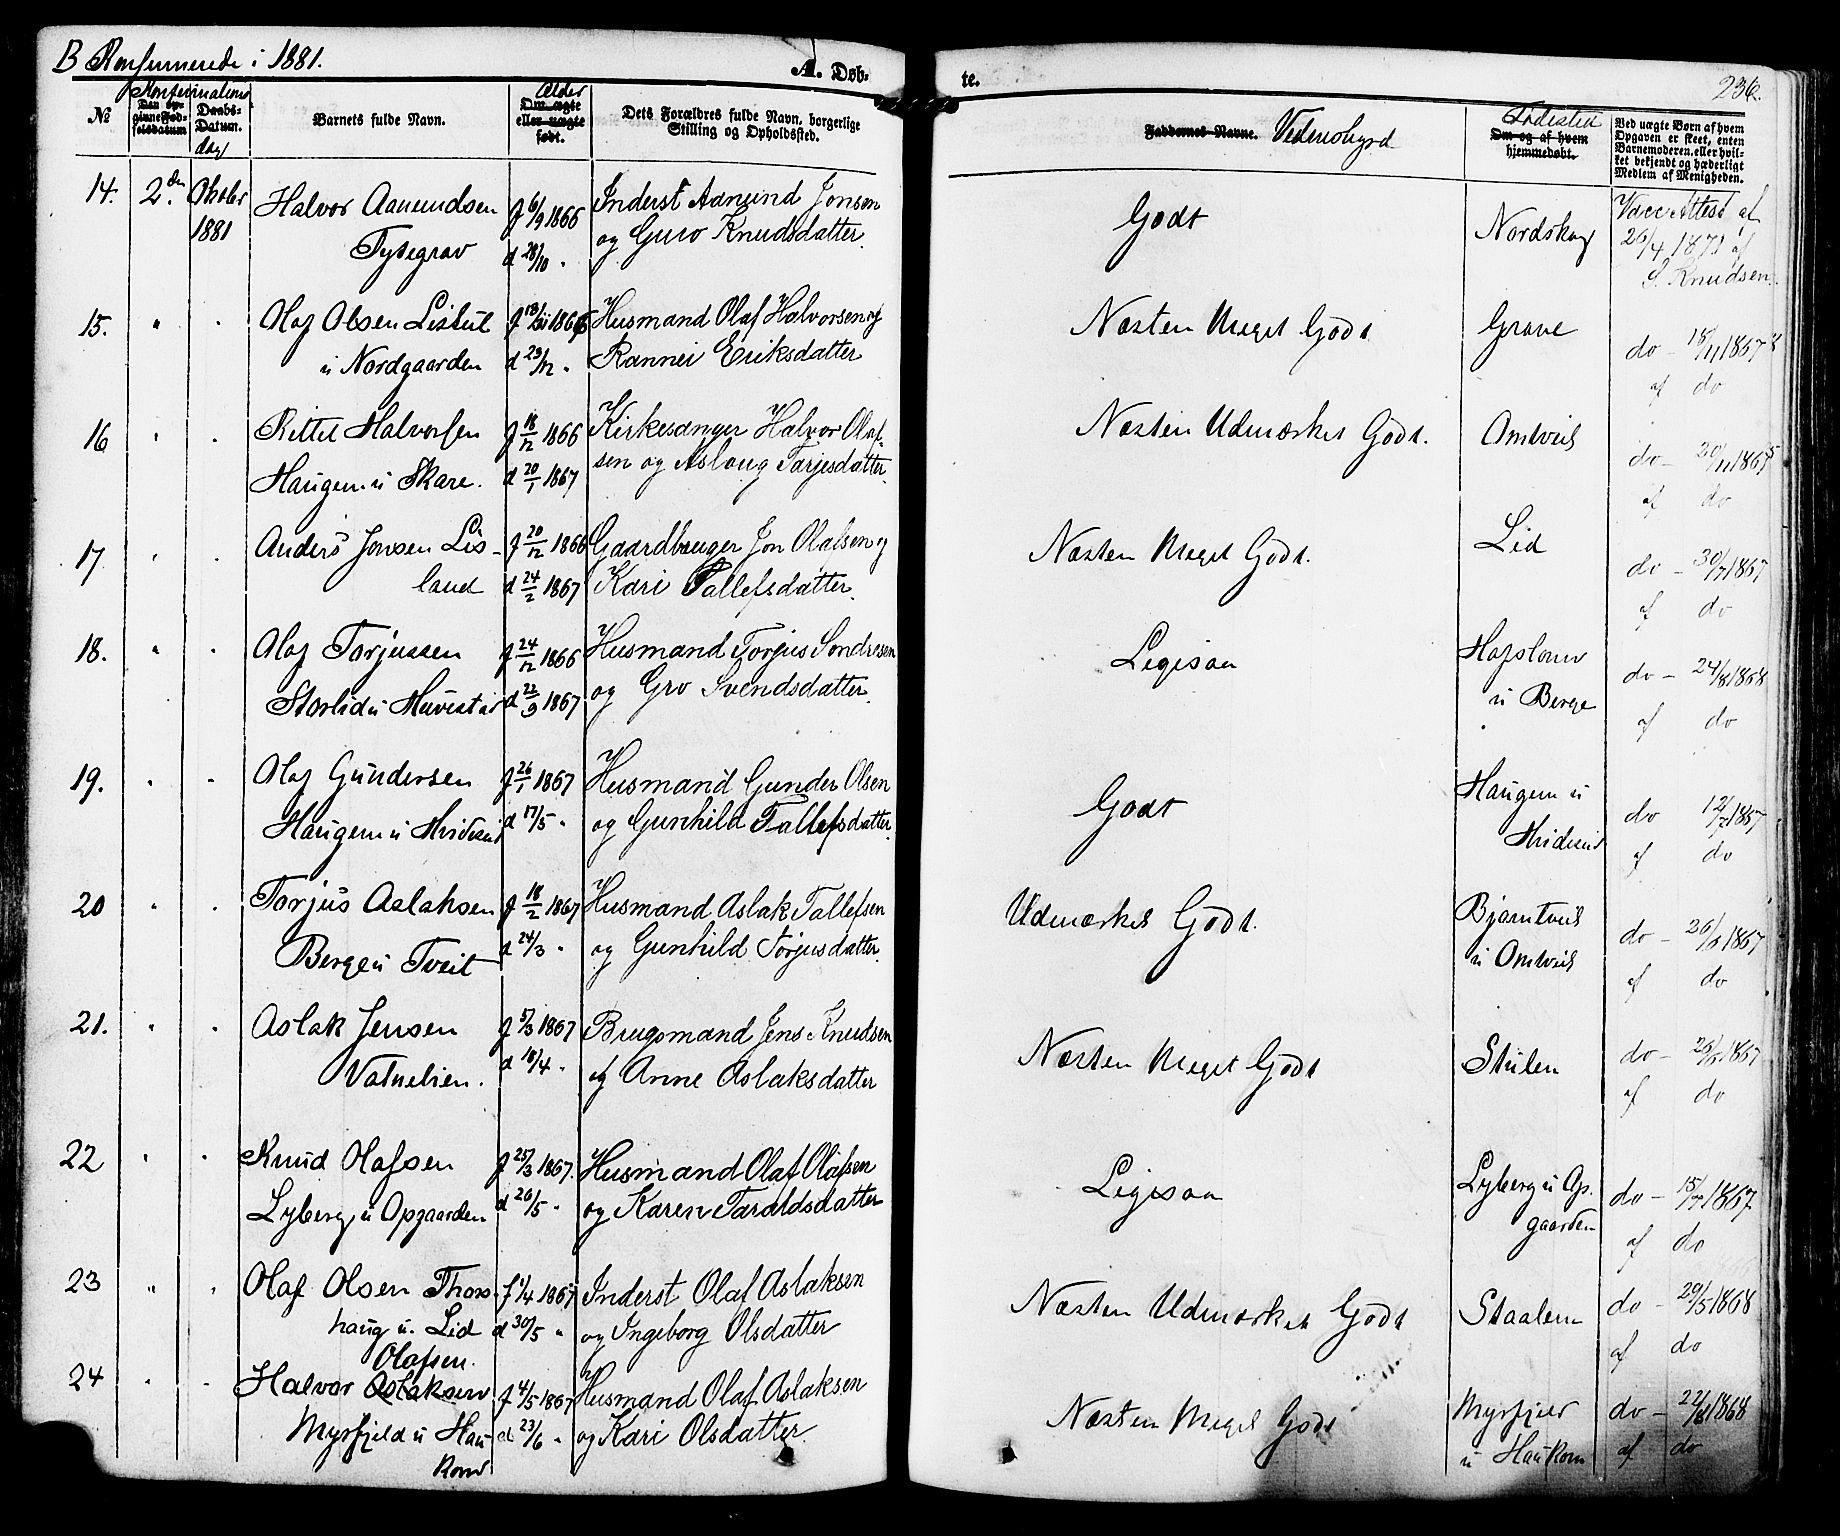 B Konfirmerede i 1881.
A. Døb-
te.
236.
№
Konfirmations
Den op-
givne Fød-
selsdatum
Daabs-
Datum.
dag
Barnets fulde Navn.
Alder
Om ægte
eller uægte
født.
Dets Forældres fulde Navn, borgerlige
Stilling og Opholdssted.
Faddernes Navne. Vidnesbyrd
Fødested
Om og af hvem
hjemmedøbt.
Ved uægte Børn af hvem
Opgaven er skeet, enten
Barnemoderen eller hvil-
ket bekjendt og hæderligt
Medlem af Menigheden.
14. 2den Oktober Halvor Aanundsen f 6/9 1866 Inderst Aanund Jonsen Godt Nordskog Vacc Attest af
1881 Tysegrav d 28/10 " og Guro Knudsdatter. 26/4 1871 af
S. Knudsen.
15. " " Olaf Olsen Listul 1866 Husmand Olaf Halvorsen og Næsten Meget Godt Grave do - 1867
u Nordgaarden d 29/12 " Rannei Eriksdatter af do
16 " " Kittil Halvorsen f 18/12 1866 Kirkesanger Halvor Olaf- Næsten Udmærket Godt. Omtveit do -
Haugen u Skare. d 20/1 1867 sen og Aslaug Tarjesdatter. af do
17 " " Anders Jonsen Lis- f 20/12 1866 Gaardbruger Jon Olafsen og Næsten Meget Godt. Lid do - 30/7 1867
land d 24/2 1867 Kari Tallefsdatter. af do
18. " " Olaf Torjussen f 24/12 1866 Husmand Torjus Sondresen Ligesaa Hafslom do - 24/8 1868
Storlid u d 22/9 1867 og Gro Svendsdatter. u Berge af do
19. " " Olaf Gundersen f 26/1 1867 Husmand Gunder Olsen Godt Haugen u do 12/7 1867
Haugen u Hvideseid d 17/5 " og Gunhild Tallefsdatter. Hvideseid af do
20 " " Torjus Aslaksen f 18/2 1867 Husmand Aslak Tallefsen Udmærket Godt. Bjørntveit do - 1867
Berge u Tveit d 24/3 " og Gunhild Torjusdatter. u Omtveit af do
21. " " Aslak Jensen f 5/3 1867 Brugsmand Jens Knudsen Næsten Meget Godt Stulen do - 1867
Vatnelien. d 18/4 " og Anne Aslaksdatter af do
22 " " Knud Olafsen f 25/3 1867. Husmand Olaf Olafsen Ligesaa Lyberg u Op- do - 15/7 1867
Lyberg u Opgaarden d 26/5 " og Karen Taraldsdatter gaarden af do
23 " " Olaf Olsen Thors- f 1/4 1867 Inderst Olaf Aslaksen Næsten Udmærket Godt Staalen do - 29/5 1868
haug u. Lid d 30/5 " og Ingeborg Olsdatter af do
Olafsen.
24 " " Halvor Aslaksen f 4/5 1867 Husmand Olaf Aslaksen Næsten Meget Godt Myrfjeld do - 22/8 1868
Myrfjeld u Hau- d 23/6 " og Kari Olsdatter. u Haukom af do
kom